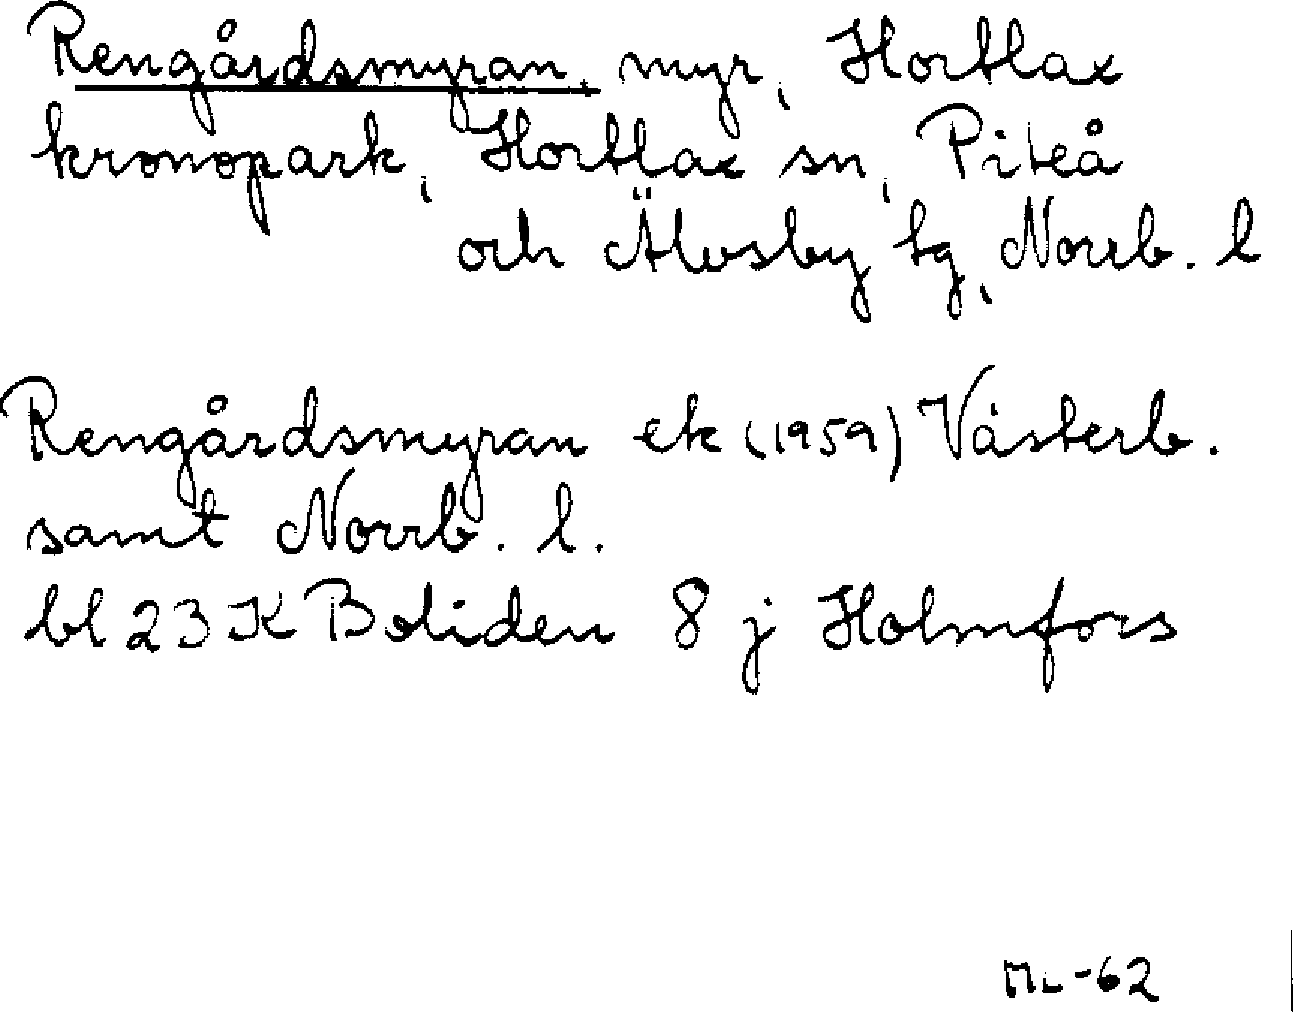 Rengårdsmyran, myr, Hortlax
kronopark, Hortlax sn, Piteå
och Älvsby tg, Norrb. l
Rengårdsmyran ek (1959) Västerb.
samt Norrb. l.
bl 23 K Boliden 8 j Holmfors
ML -62